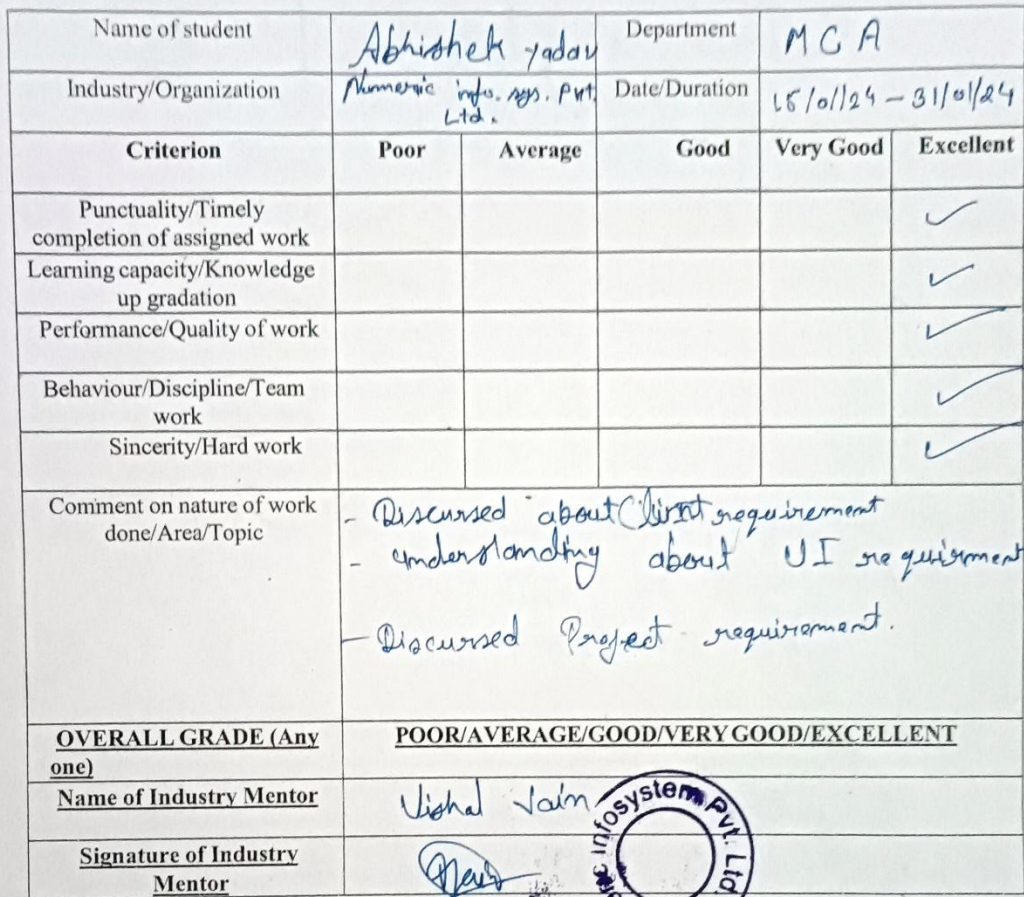 Name of student Abhishek yadav Department MCA
Industry/Organization Numeric info. sys. Pvt. Ltd. Date/Duration 15/01/24 – 31/01/24
Criterion Poor Average Good Very Good Excellent
Punctuality/Timely
completion of assigned work ✓
Learning capacity/Knowledge
up gradation ✓
Performance/Quality of work ✓
Behaviour/Discipline/Team
work ✓
Sincerity/Hard work ✓
Comment on nature of work
done/Area/Topic
- Discursed about Client requirement
- understanding about UI requirment
- Discursed Project requirement.
OVERALL GRADE (Any
one)
POOR/AVERAGE/GOOD/VERY GOOD/EXCELLENT
Name of Industry Mentor Vishal Jain
Signature of Industry
Mentor
Infosystem Pvt. Ltd